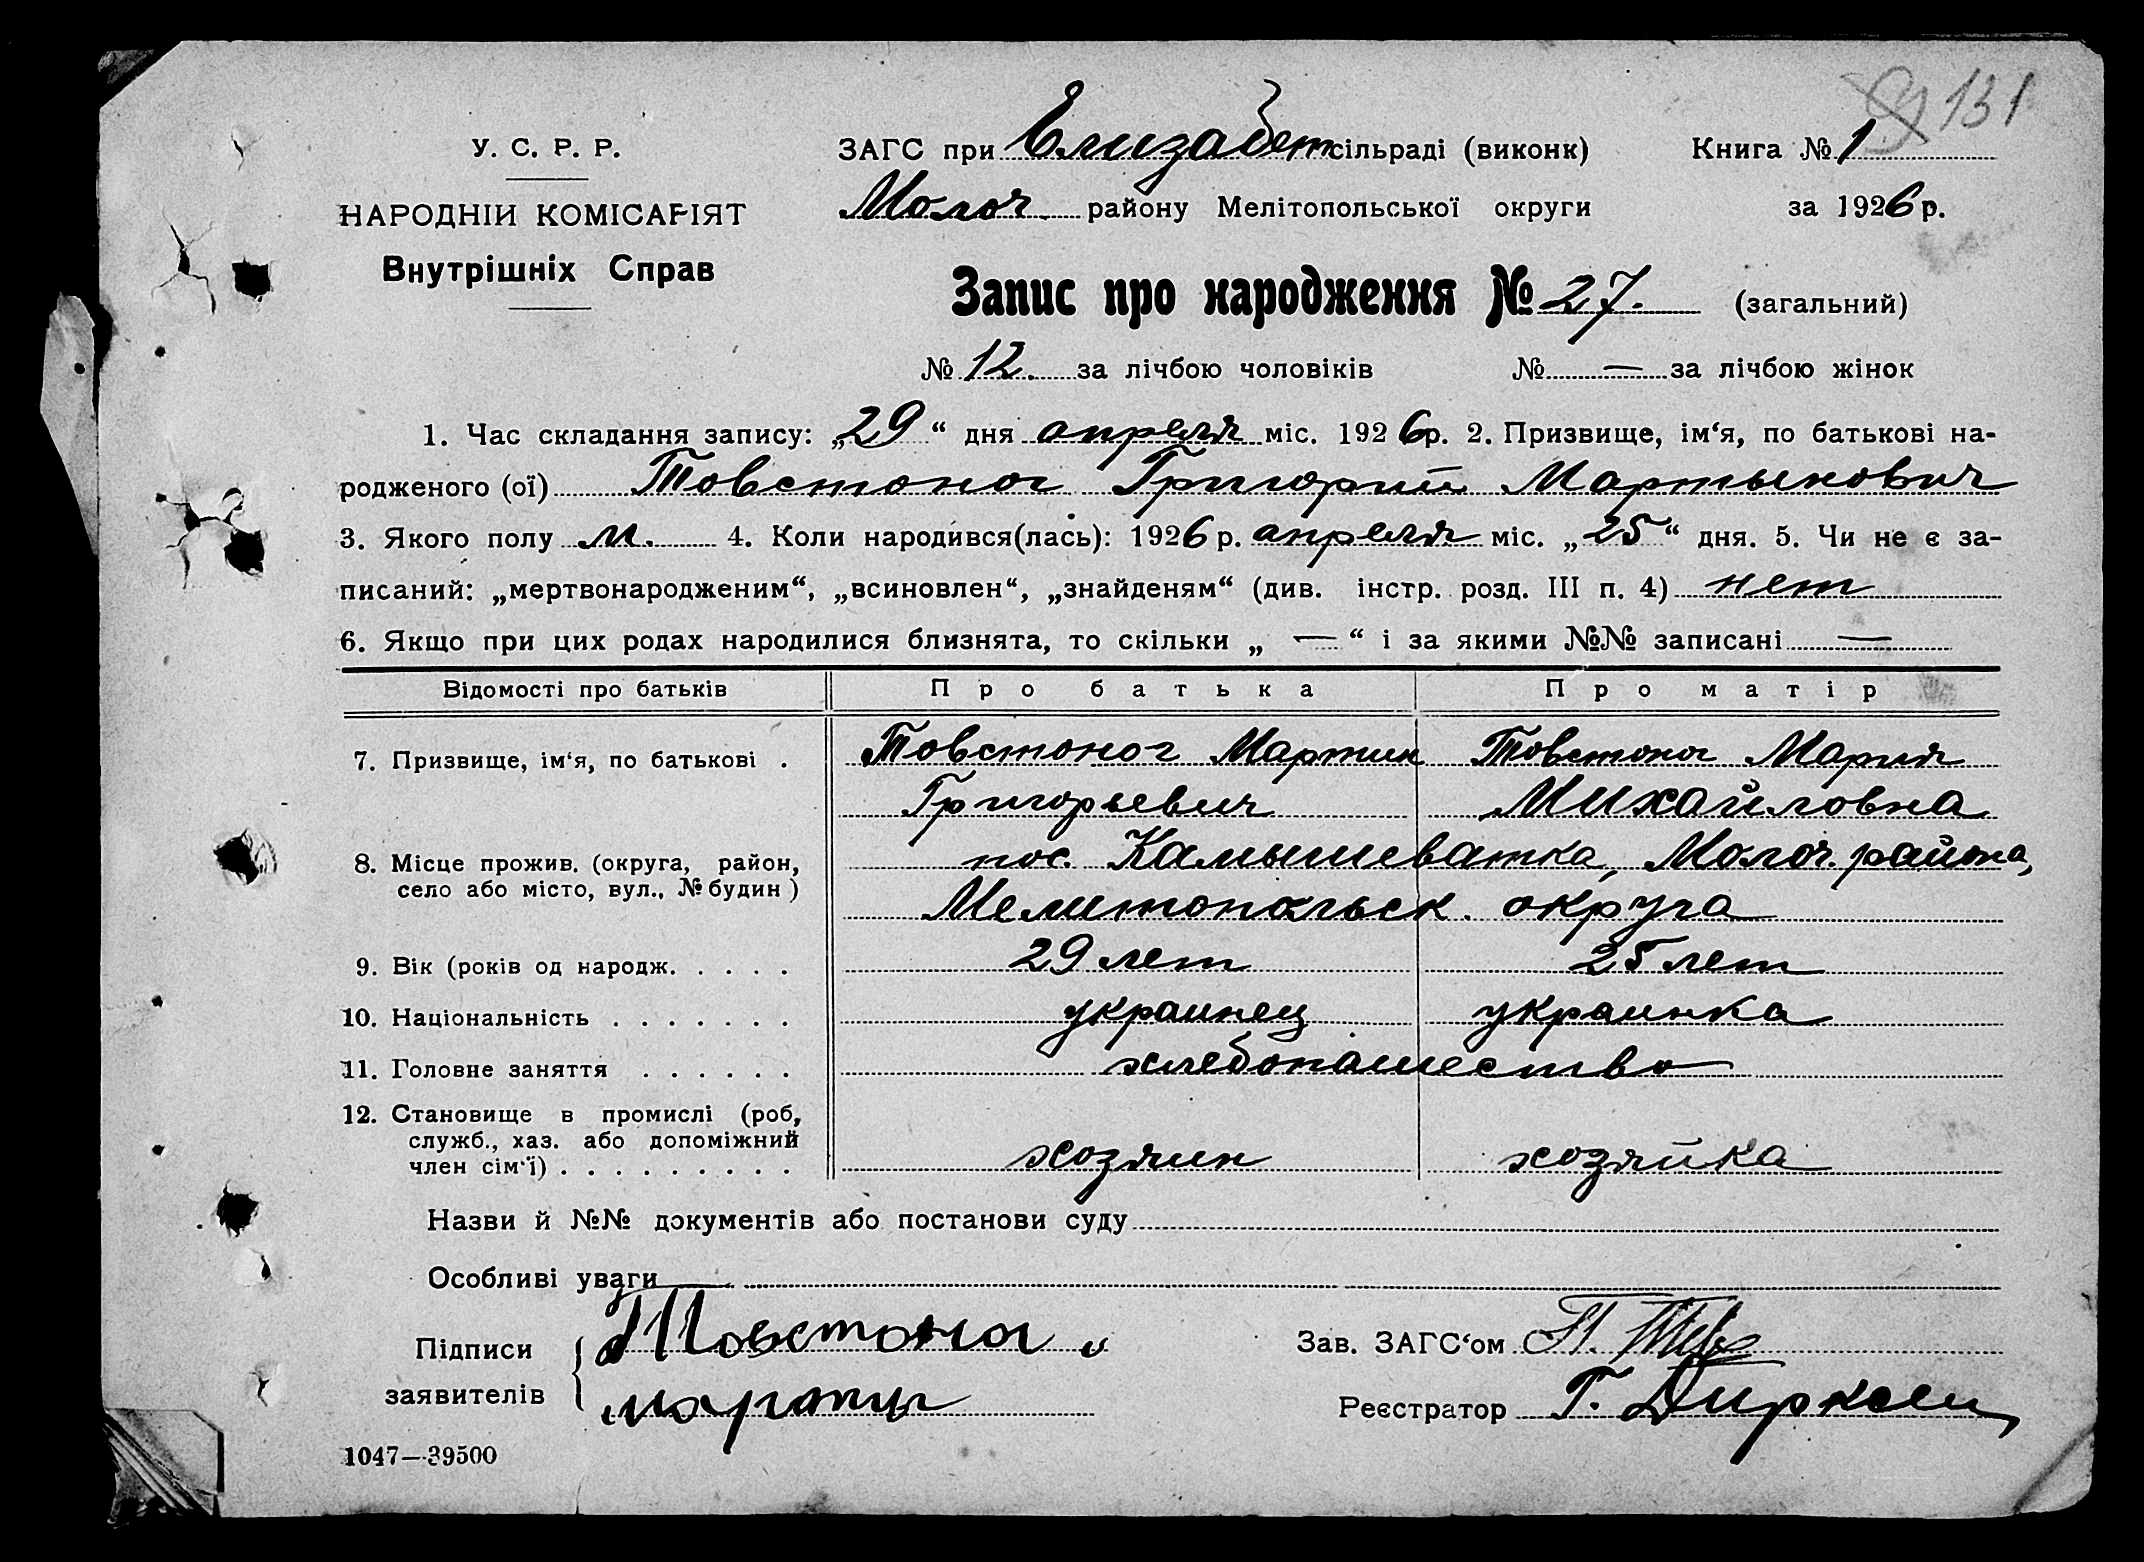 131
У. С. Р. Р.
ЗАГС при Елизабет сільраді (виконк) Книга № 1
НАРОДНІЙ КОМІСАРІЯТ Молоч. району Мелітопольської округи за 1926 р.
Внутрішніх Справ
Запис про народження № 27. (загальний)
№ 12. за лічбою чоловіків № — за лічбою жінок
1. Час складання запису: „29“ дня апреля міс. 1926 р. 2. Призвище, ім‘я, по батькові на-
родженого (ої) Товстоног Григорий Мартынович
3. Якого полу м. 4. Коли народився(лась): 1926 р. апреля міс. „25“ дня. 5. Чи не є за-
писаний: „мертвонародженим“, „всиновлен“, „знайденям“ (див. інстр. розд. III п. 4) нет
6. Якщо при цих родах народилися близнята, то скільки „ — “ і за якими №№ записані —
Відомості про батьків Про батька Про матір
7. Призвище, ім‘я, по батькові . Товстоног Мартин Товстоног Мария
Григорьевич Михайловна
8. Місце прожив. (округа, район, пос. Камышеватка, Молоч. района,
село або місто, вул., № будин ) Мелитопольск. округа
9. Вік (років од народж. . . . . 29 лет 25 лет
10. Національність . . . . . . . украинец украинка
11. Головне заняття . . . . . . хлебопашество
12. Становище в промислі (роб,
служб., хаз. або допоміжний
член сім‘ї) . . . . . . . . . хозяин хозяйка
Назви й №№ документів або постанови суду
Особливі уваги —
Підписи Товстоног Зав. ЗАГС‘ом
заявителів Реєстратор Г. Дирксен
1047—39500